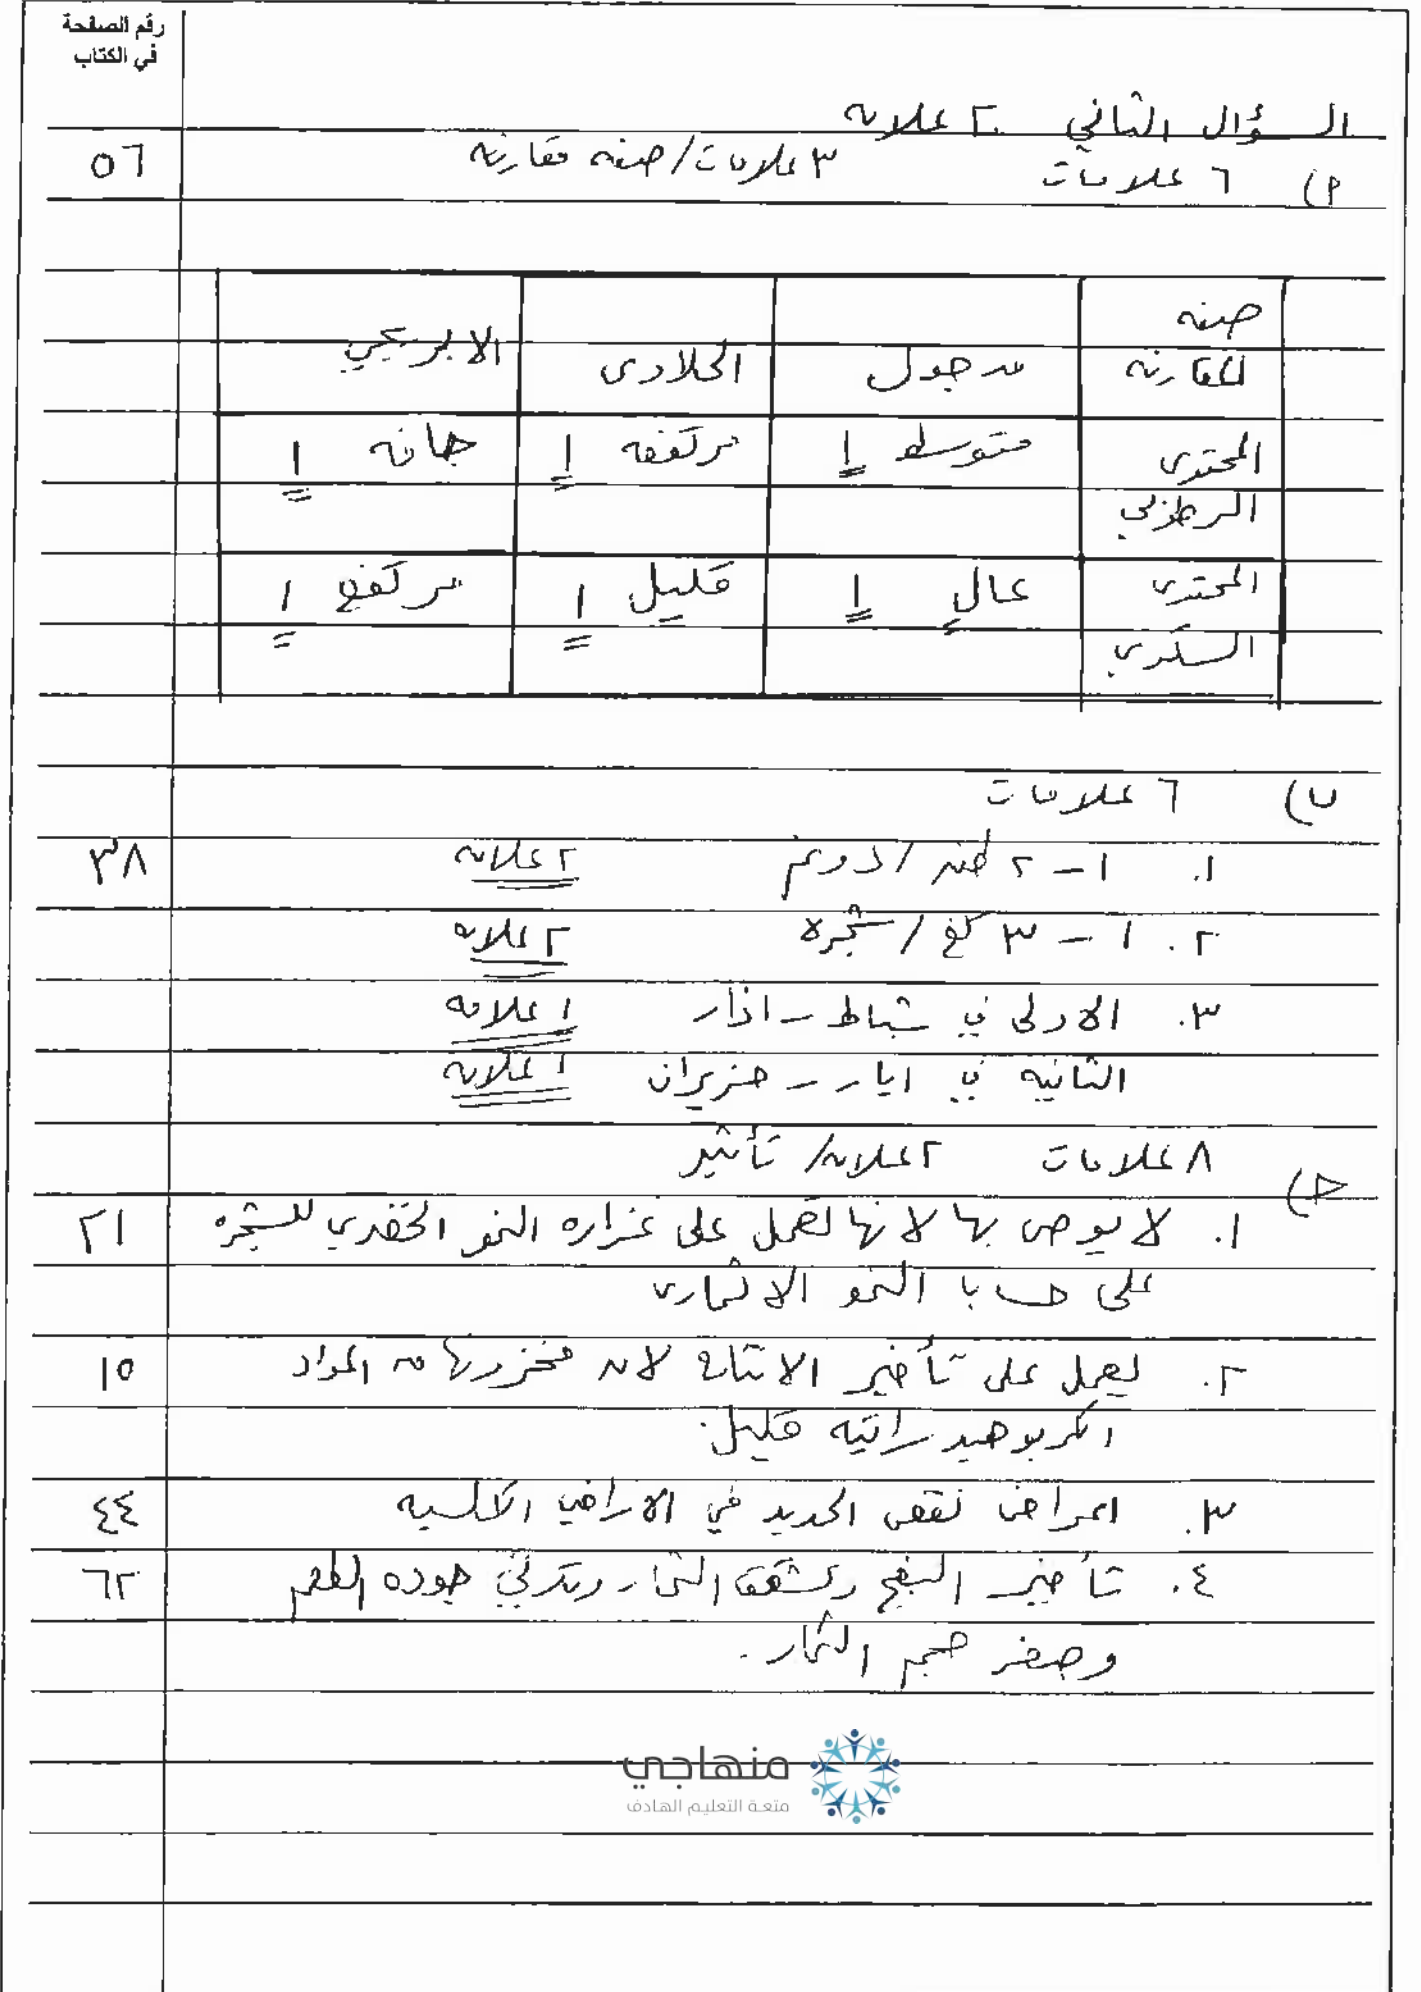 رقم الصفحة
في الكتاب
السؤال الثاني ٢٠ علامه
٥٦
أ) ٦ علامات ٣ علامات/صفه مقارنه
صفه المقارنه
مدجول
الحلاوي
الابريجي
المحتوى الرطوبي
متوسط ١
مرتفعه ١
جافه ١
المحتوى السكري
عالٍ ١
قليل ١
مرتفع ١
ب) ٦ علامات
٣٨
١. ١ – ٢ طن / دونم ٢ علامه
٢. ١ – ٣ كغ / شجره ٢ علامه
٣. الاولى في شباط – اذار ١ علامه
الثانيه في ايار – حزيران ١ علامه
ج) ٨ علامات ٢ علامه/ تأثير
٢١
١. لا يوصى بها لانها تعمل على غزاره النمو الخضري للشجره
على حساب النمو الاثماري
١٥
٢. يعمل على تأخير الانتاج لان مخزونها من المواد
الكربوهيدراتيه قليل.
٤٤
٣. اعراض نقص الحديد في الاراضي الكلسيه
٦٢
٤. تأخير النضج وتشقق الثمار وتدني جوده الطعم
وصغر حجم الثمار.
منهاجي
متعة التعليم الهادف